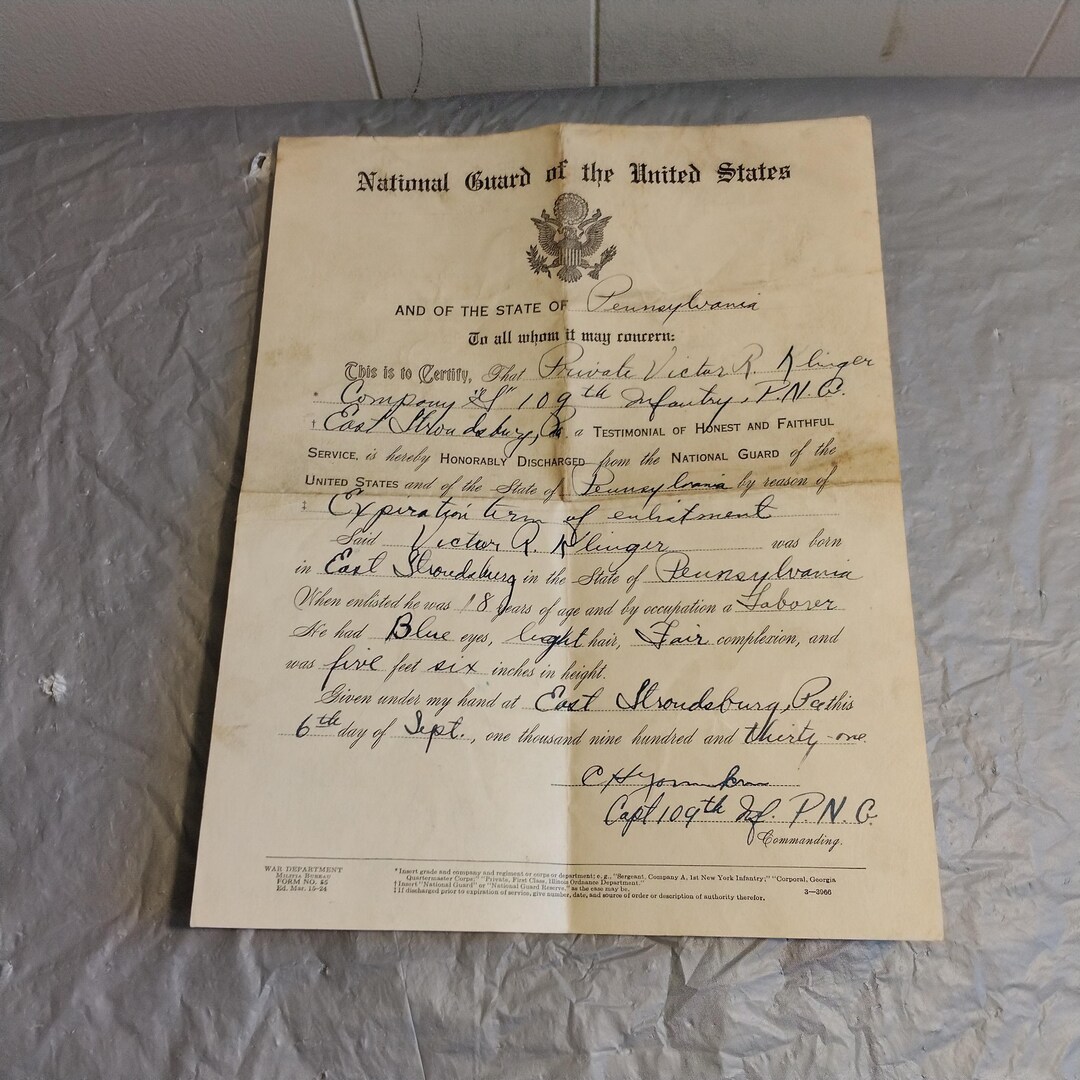 National Guard of the United States
AND OF THE STATE OF Pennsylvania
To all whom it may concern:
This is to Certify, That Private Victor R. Klinger
Company 109th Infantry, P.N.G.
† East Stroudsburg, Pa. a TESTIMONIAL OF HONEST AND FAITHFUL
SERVICE, is hereby HONORABLY DISCHARGED from the NATIONAL GUARD of the
UNITED STATES and of the State of Pennsylvania by reason of
‡ Expiration term of enlistment
Said Victor R. Klinger was born
in East Stroudsburg in the State of Pennsylvania
When enlisted he was 18 years of age and by occupation a Laborer
He had Blue eyes, light hair, Fair complexion, and
was five feet six inches in height.
Given under my hand at East Stroudsburg, Pa this
6th day of Sept., one thousand nine hundred and thirty-one.
C H
Capt 109th Inf. P.N.G.
Commanding.
WAR DEPARTMENT
MILITIA BUREAU
FORM NO. 55
Ed. Mar. 15-24
*Insert grade and company and regiment or corps or department; e.g., "Sergeant, Company A, 1st New York Infantry;" "Corporal, Georgia
Quartermaster Corps;" "Private, First Class, Illinois Ordnance Department."
†Insert "National Guard" or "National Guard Reserve," as the case may be.
‡If discharged prior to expiration of service, give number, date, and source of order or description of authority therefor.
3—3966